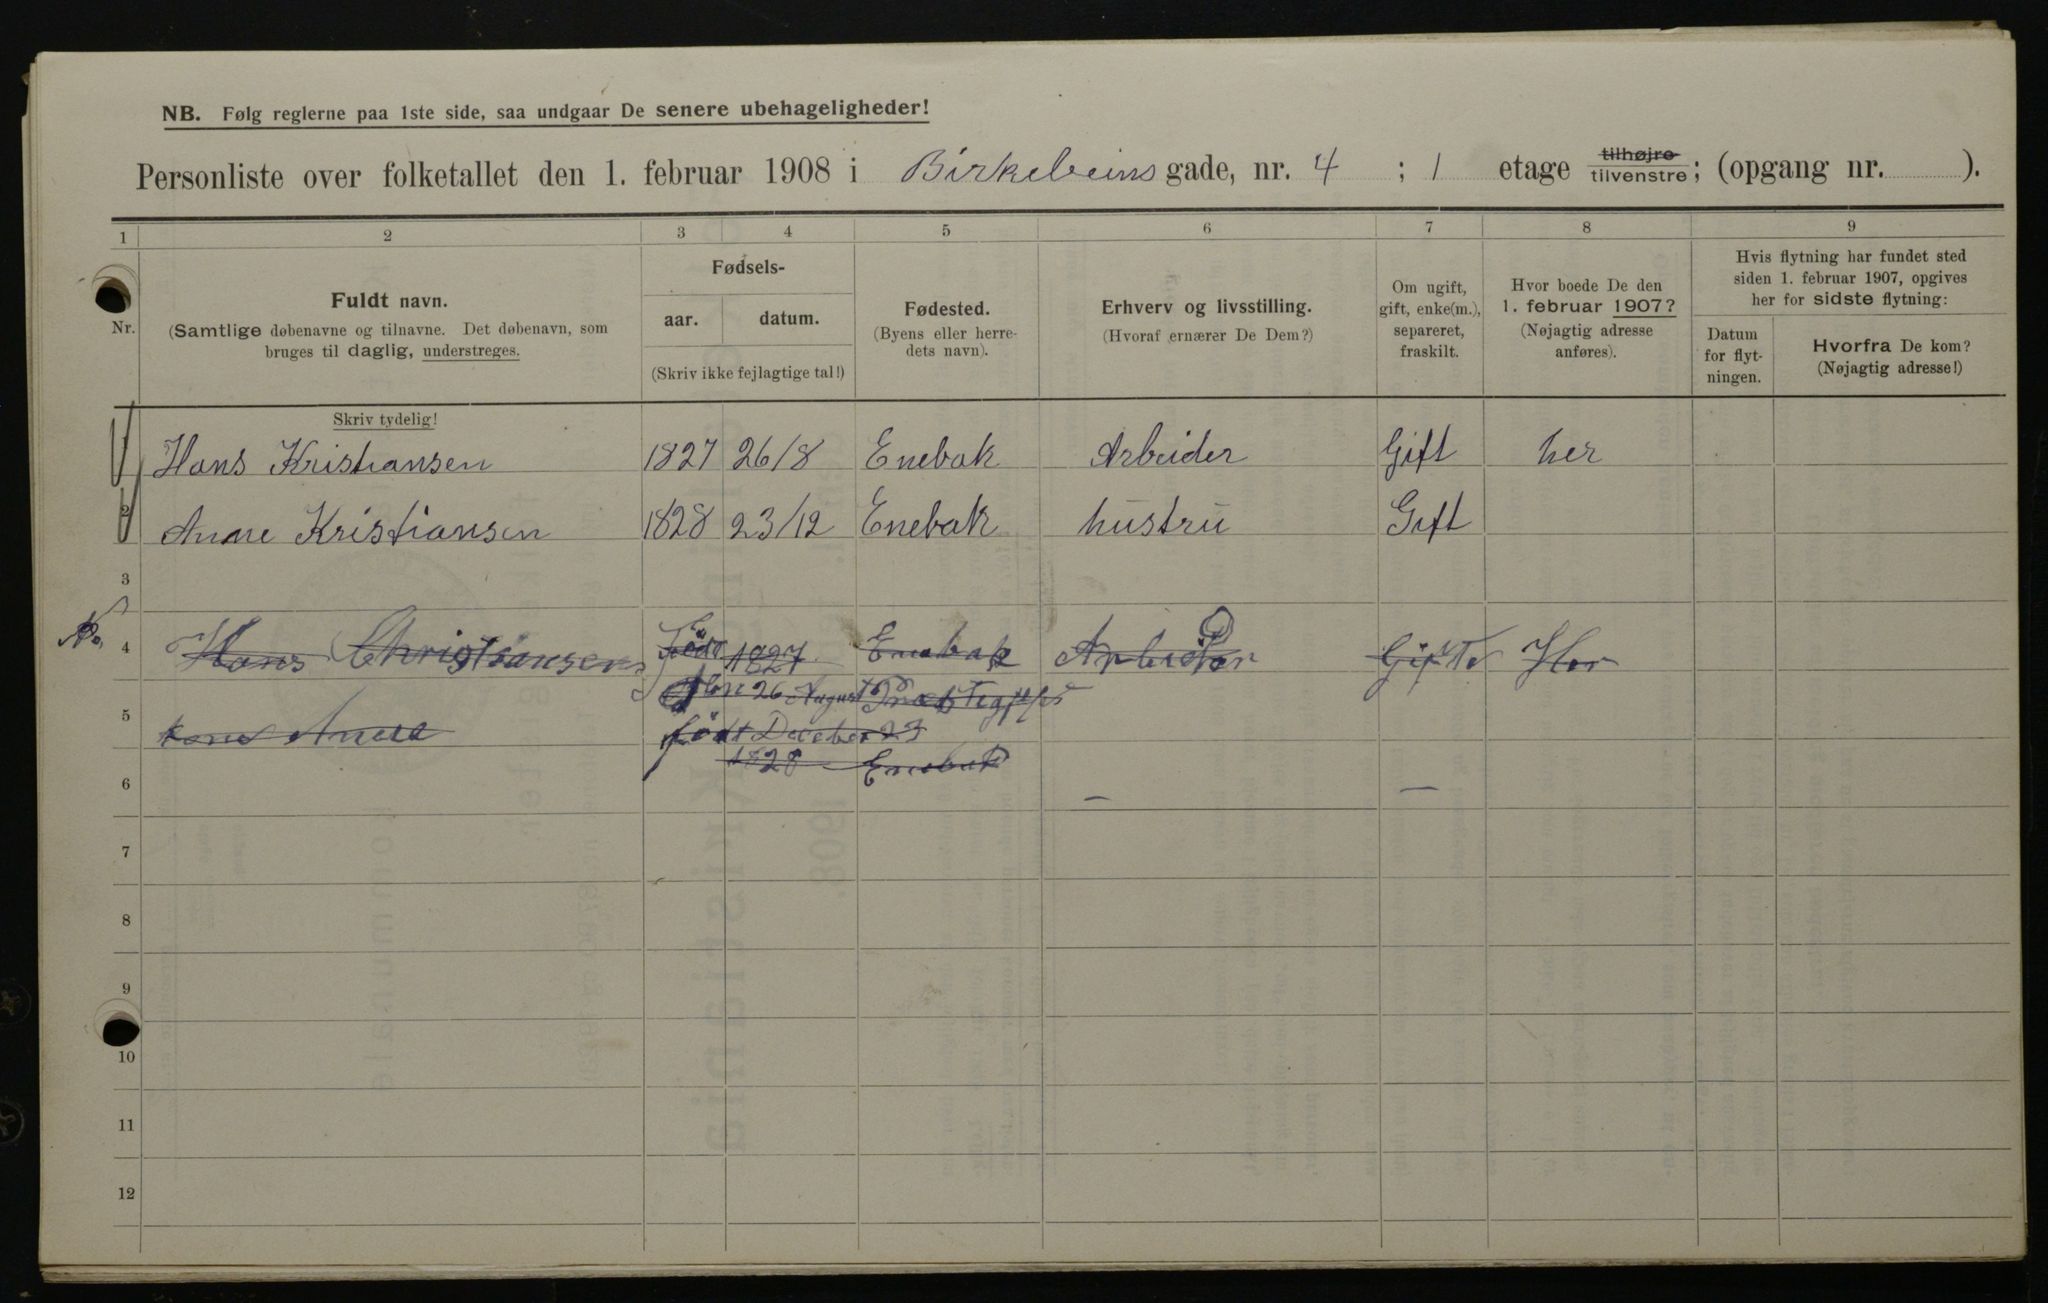 NB. Følg reglerne paa 1ste side, saa undgaar De senere ubehageligheder!
Personliste over folketallet den 1. februar 1908 i Birkebeins gade, nr. 4 ; 1 etage tilhøjre tilvenstre; (opgang nr. ).
1 2 3 4 5 6 7 8 9
Nr.
Fuldt navn.
(Samtlige døbenavne og tilnavne. Det døbenavn, som
bruges til daglig, understreges.
Fødsels-
aar. datum.
(Skriv ikke fejlagtige tal!)
Fødested.
(Byens eller herre-
dets navn).
Erhverv og livsstilling.
(Hvoraf ernærer De Dem?)
Om ugift,
gift, enke(m.),
separeret,
fraskilt.
Hvor boede De den
1. februar 1907?
(Nøjagtig adresse
anføres).
Hvis flytning har fundet sted
siden 1. februar 1907, opgives
her for sidste flytning:
Datum
for flyt-
ningen.
Hvorfra De kom?
(Nøjagtig adresse!)
Skriv tydelig!
1 Hans Kristiansen 1827 26/8 Enebak Arbeider Gift her
2 Anne Kristiansen 1828 23/12 Enebak hustru Gift
3
No. 4 Hans Christiansen Född 1827 Enebak Arbeider Gift Her
26 August
5 kone Anne född December 23
1828 Enebak
6 — —
7
8
9
10
11
12